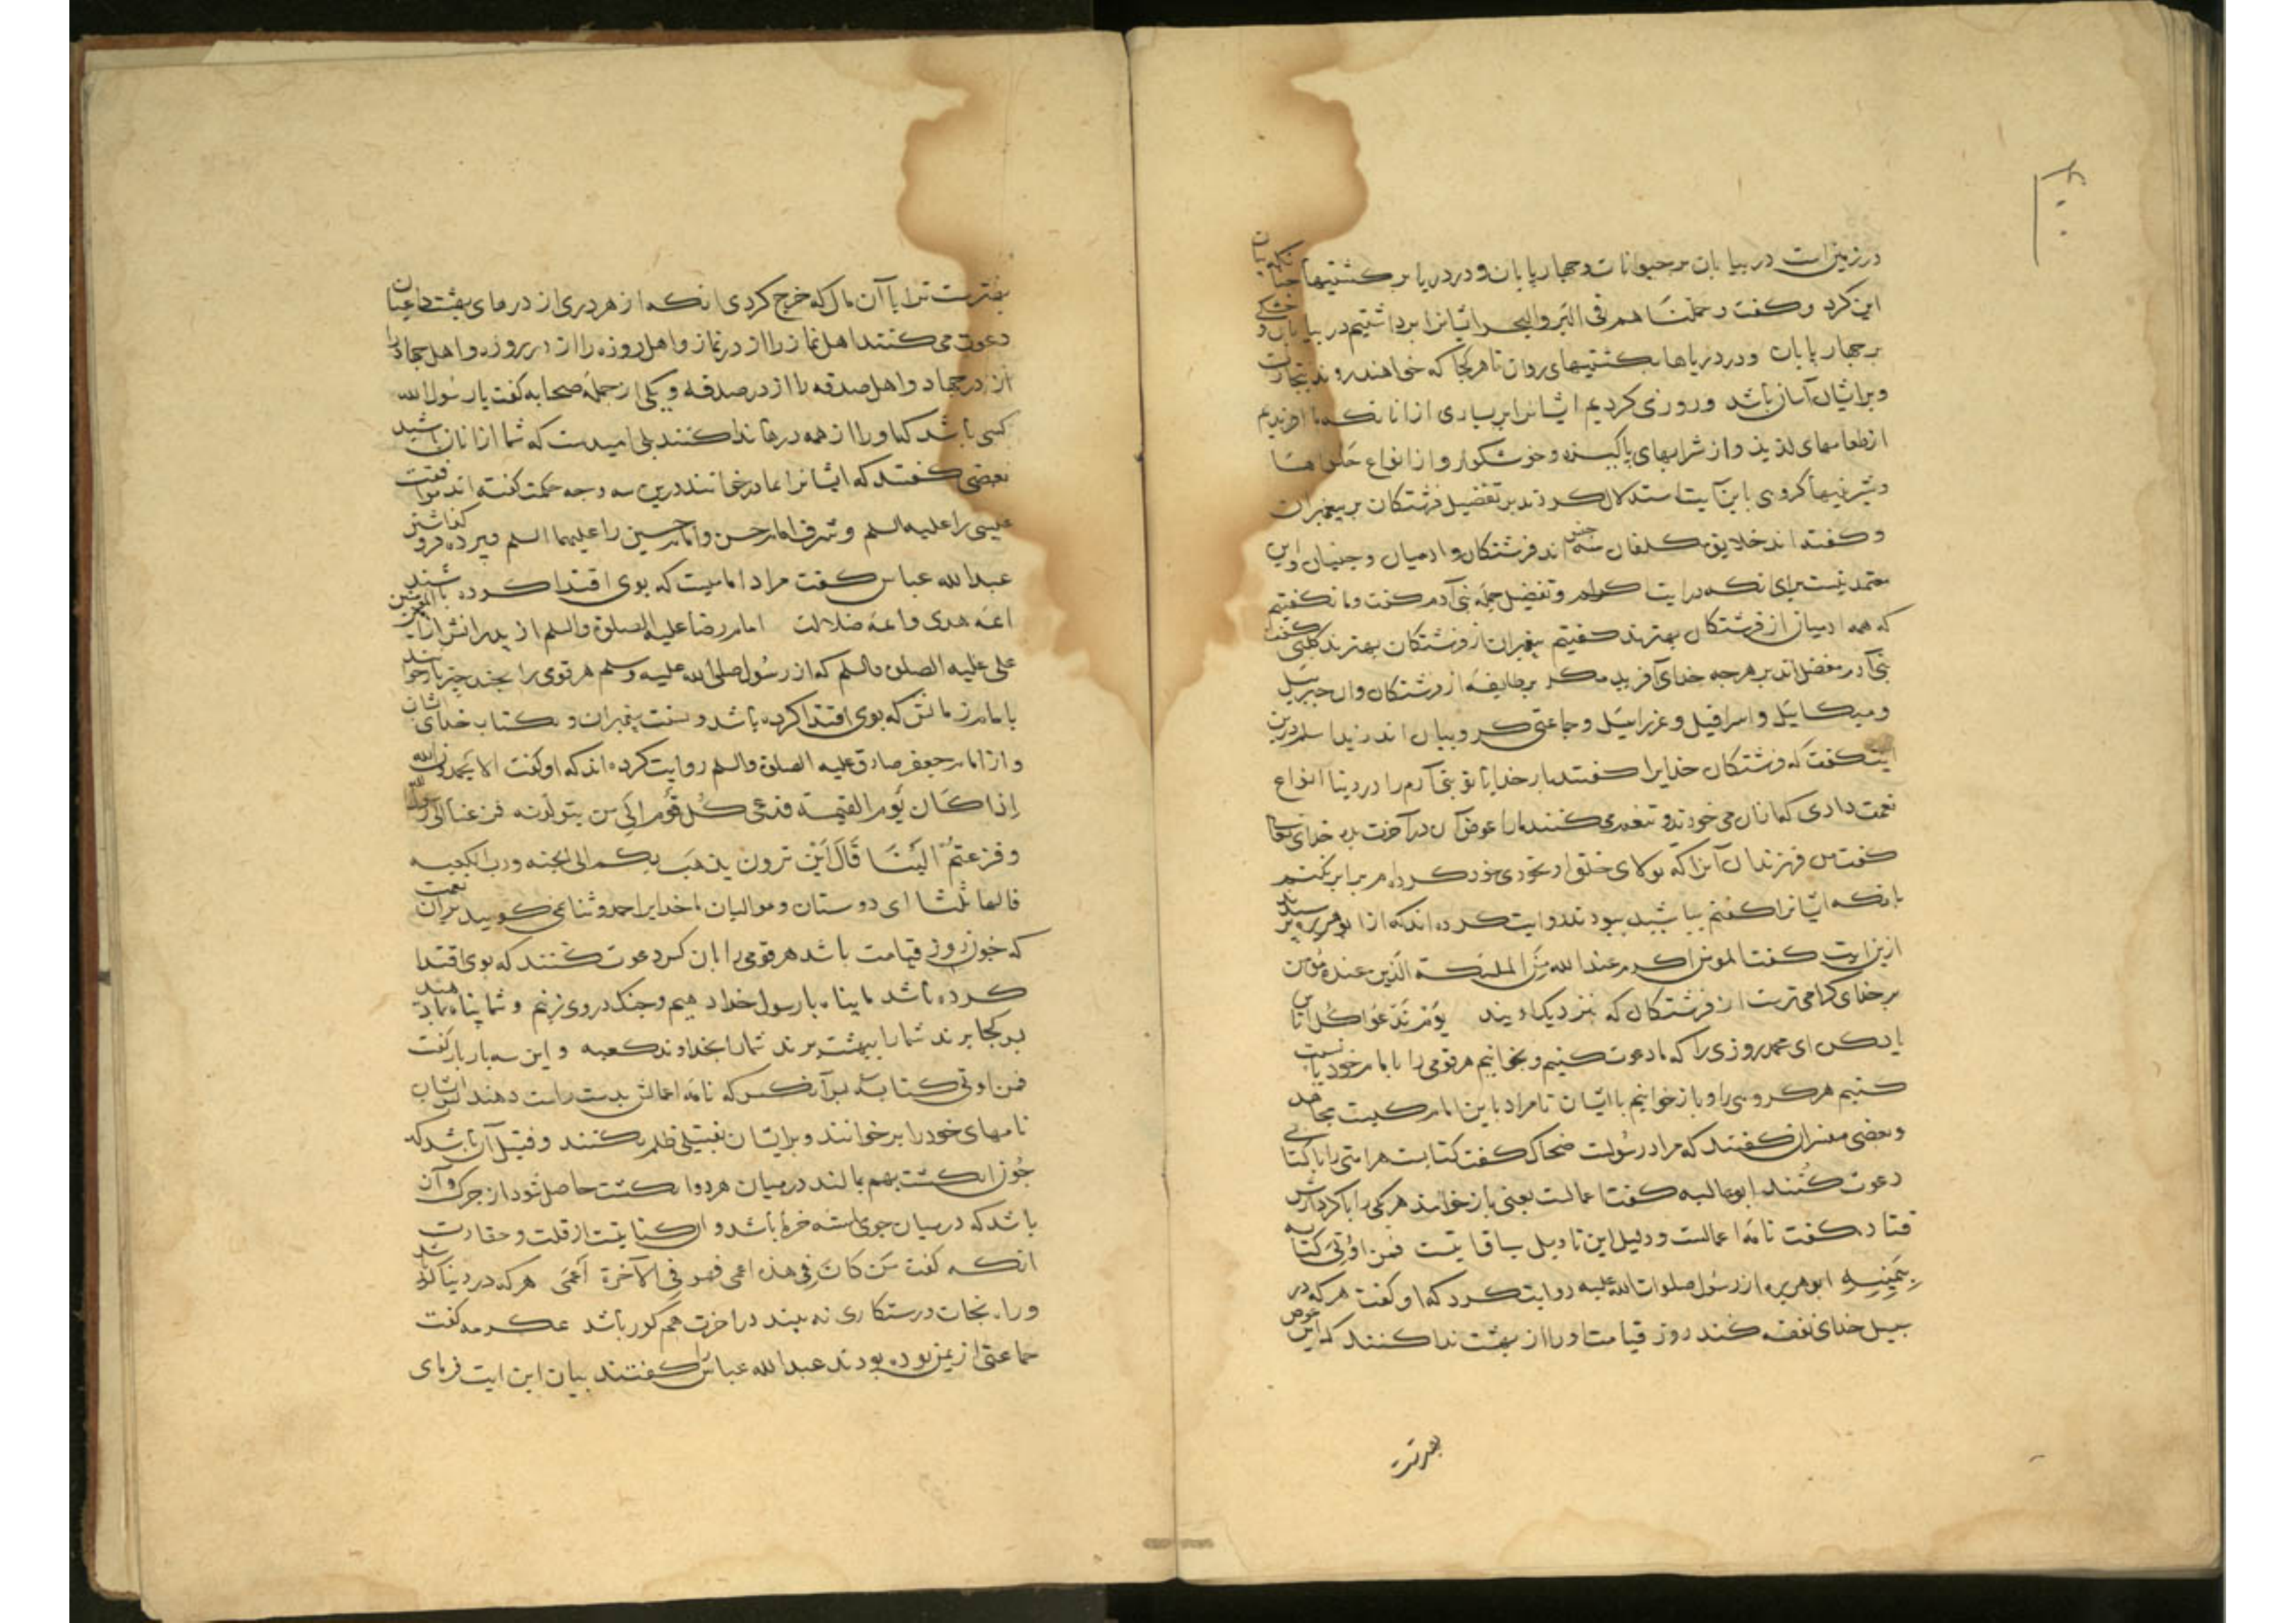 در زمین است در بیابان بر حیوانات و جهارپایان و در دریا بر کشتیها
این کرد و کفت و حملناهم فی البر والبحر ایشانرا برداشتیم در بیابان و خشکی
بر جهارپایان و در دریاها بکشتیهای روان تا هر کجا که خواهند روند تجارت
و بر ایشان آسان باشد و روزی کردیم ایشانرا بر بسیاری از انانکه ما افریدیم
از طعامهای لذیذ و از شرابهای پاکیزه و خوشکوار و از انواع حلواها
و شیرینیها کروهی باین آیت استدلال کردند بر تفضیل فرشتکان بر پیغمبران
و کفتند اند خلایق مکلفان سه جنس اند فرشتکان و ادمیان و جنیان و این
معتمد نیست برای انکه در ایت اکرام و تفضیل جمله بنی آدم کفت و ما نکفتیم
که همه ادمیان از فرشتکان بهترند کفتیم پیغمبران از فرشتکان بهترند کلبی کفت
بنی آدم مفضل اند بر هرجه خدای آفرید مکر بر طایفه از فرشتکان و ان جبرئیل
و میکائیل و اسرافیل و عزرائیل و جماعتی کروبیان اند زید اسلم درین
ایت کفت که فرشتکان خدایرا کفتند بار خدایا تو بنی آدم را در دنیا انواع
نعمت دادی که انان می خورند و تنعم می کنند ما را عوض آن در آخرت بده خدای تعالی
کفت من فرزندان آنرا که تولای خلق او بخودی خود کرده ام برابر نکنم
با انکه ایشانرا کفتم بباشید ببودند روایت کرده اند که از ابوهریره پرسیدند
ازین ایت کفت المومن اکرم عند الله من الملئکة الذین عنده مومن
بر خدای کرامی ترست از فرشتکان که بنزدیک اویند یوم ندعوا کل اناس
یاد کن ای محمد روزی را که ما دعوت کنیم و بخوانیم هر قومی را با امام خود یا نسبت
کنیم هر کروهی را و باز خوانیم با ایشان تا مراد باین امام کیست مجاهد
و بعضی مفسران کفتند که مراد رسولست ضحاک کفت کتابست هر امتی را با کتابی
دعوت کنند ابوعالیه کفت اعمالست یعنی باز خوانند هر یکی را با کردارش
قتاده کفت نامه اعمالست و دلیل این تاویل سیاقا یتست فمن اوتی کتابه
بیمینه ابوهریره از رسول صلوات الله علیه روایت کرد که او کفت هر که در
سبیل خدای نفقه کند روز قیامت او را از بهشت ندا کنند که این عوض
بهترست
بهترست ترا یا آن مال که خرج کردی انکه از هر دری از درهای بهشت داعیان
دعوت می کنند اهل نماز را از در نماز و اهل روزه را از در روزه و اهل جهاد را
از در جهاد و اهل صدقه را از در صدقه و یکی از جمله صحابه کفت یا رسول الله
کسی باشد که او را از همه درها ندا کنند بلی امیدست که شما از انان باشید
بعضی کفتند که ایشانرا بمادر خوانند درین سه وجه حکمت کفته اند موافقت
عیسی را علیه السلم و شرف امام حسن و امام حسین را علیهما السلم و پرده فرو کذاشتن
عبدالله عباس کفت مراد امامیست که بوی اقتدا کرده باشند
ائمه هدی و ائمه ضلالت امام رضا علیه الصلوة والسلم از پدرانش از امیر المومنین
علی علیه الصلوة والسلم که از رسول صلی الله علیه وسلم هر قومی را بجند چیز باز خوانند
بامام زمانش که بوی اقتدا کرده باشد و سنت پیغمبران و بکتاب خدای ایشان
و از امام جعفر صادق علیه الصلوة والسلم روایت کرده اند که او کفت الا یحمدون الله
اذا کان یوم القیمة فدعی کل قوم الی من یتولونه فزعنا الی رسول الله
و فزعتم الینا قال این ترون یذهب بکم الی الجنه ورب الکعبه
قالها ثلثا ای دوستان و موالیان ما خدایرا حمد و ثنا می کویید بران نعمت
که چون روز قیامت باشد هر قومی را بان کس دعوت کنند که بوی اقتدا
کرده باشد ما پناه با رسول خدا دهیم و جنک در وی زنیم و شما پناه بما دهید
بر کجا برند شما را ببهشت برند شما را بخداوند کعبه و این سه بار باز کفت
فمن اوتی کتابه بر آنکس که نامه اعمالش بدست راست دهند ایشان
نامهای خود را برخوانند و بر ایشان بفتیلی ظلم نکنند و فتیل آن باشد که
جون انکشت بهم بمالند در میان هر دو انکشت حاصل شود از جرک و آن
باشد که در میان جوی استه خرما باشد و ان کنایتست از قلت و حقارت
انکه کفت من کان فی هذه اعمی فهو فی الآخرة اعمی هر که در دنیا کور باشد
و راه نجات و رستکاری نه بیند در اخرت هم کور باشد عکرمه کفت
جماعتی از یمن بوده بودند عبدالله عباس را کفتند بیان این ایت فرمای